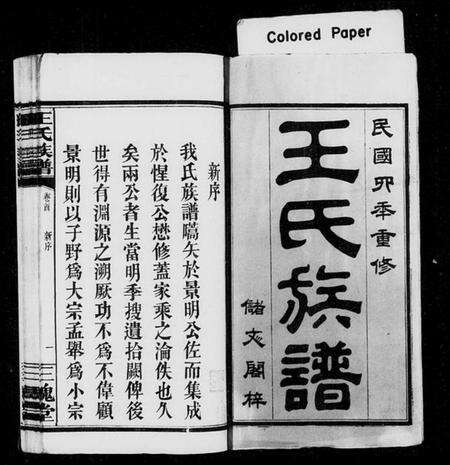 Colored Paper
民國丌年重修
王氏族譜
儲文閣梓
新序
我氏族譜嚆矢於景明公佐而集成
於惺復公懋修蓋家乘之淪佚也久
矣兩公者生當明季搜遺拾闕俾後
世得有淵源之溯厥功不為不偉顧
景明則以子野為大宗孟舉為小宗
王氏族譜
卷首
新序
一
三槐堂